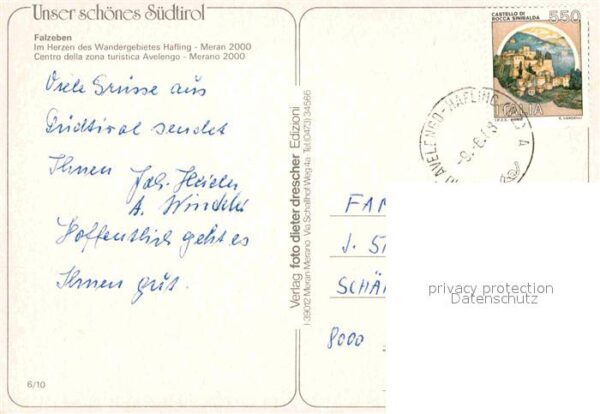 Unser schönes Südtirol
Falzeben
Im Herzen des Wandergebietes Hafling - Meran 2000
Centro della zona turistica Avelengo - Merano 2000
Viele Grüsse aus
Südtirol sendet
Ihnen
Joh.
A.
Hoffentlich geht es
Ihnen gut.
6/10
Verlag foto dieter drescher Edizioni
I-39012 Meran-Merano Via Schaffnof Weg 4a Tel.(0473) 34566
CASTELLO DI
ROCCA SINIBALDA
550
ITALIA
AVELENGO-HAFLING
FAM
J. ST
SCHÄ
8000
privacy protection
Datenschutz